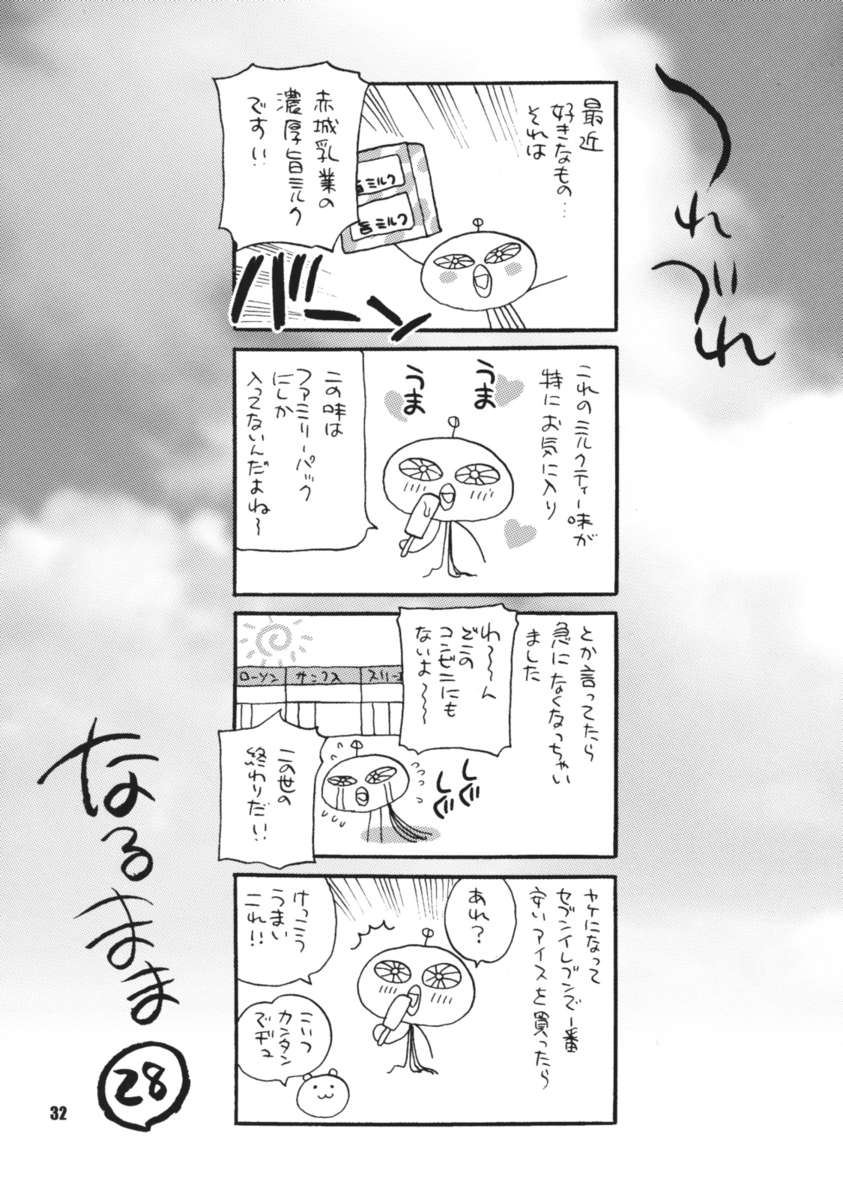 つれづれ
なるまま
28
最近
好きなもの…
それは
赤城乳業の
濃厚旨ミルク
です!!
旨ミルク
旨ミルク
バーン
これのミルクティー味が
特にお気に入り
うま
うま
この味は
ファミリーパック
にしか
入ってないんだよね〜
とか言ってたら
急になくなっちゃい
ました
わ〜〜ん
どこの
コンビニにも
ないよ〜〜
ローソン
サンクス
スリーエ
しぐ
しぐ
この世の
終わりだい!!
ヤケになって
セブンイレブンで一番
安いアイスを買ったら
あれ?
けっこう
うまい
これ!!
こいつ
カンタン
でヂュ
32